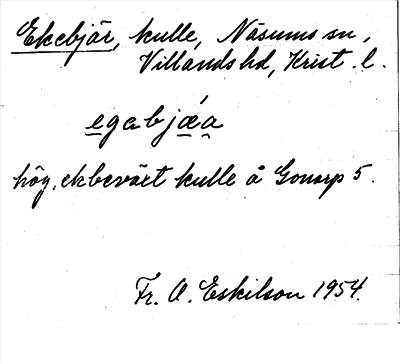 Ekebjär, kulle, Näsums sn,
Villands hd, Krist. l.
egabjǽa
hög, ekbeväxt kulle å Gonarp 5.
Fr. O. Eskilson 1954.